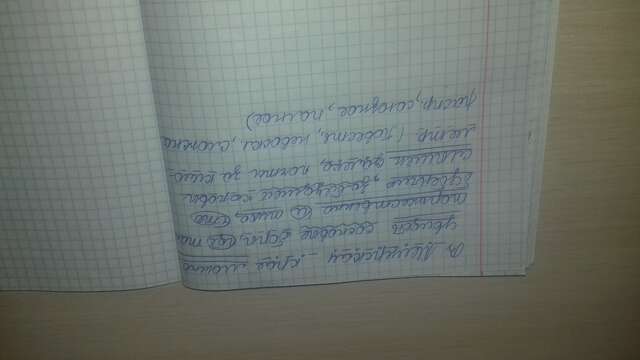 В Мещерском крае можно
увидеть сосновые боры, где так
торжественно и тихо, что
бубенчик, заблудшей коровы
слышен далеко, почти за кило-
метр. (Повеств., невоскл., сложное
распр., союзное, полное)